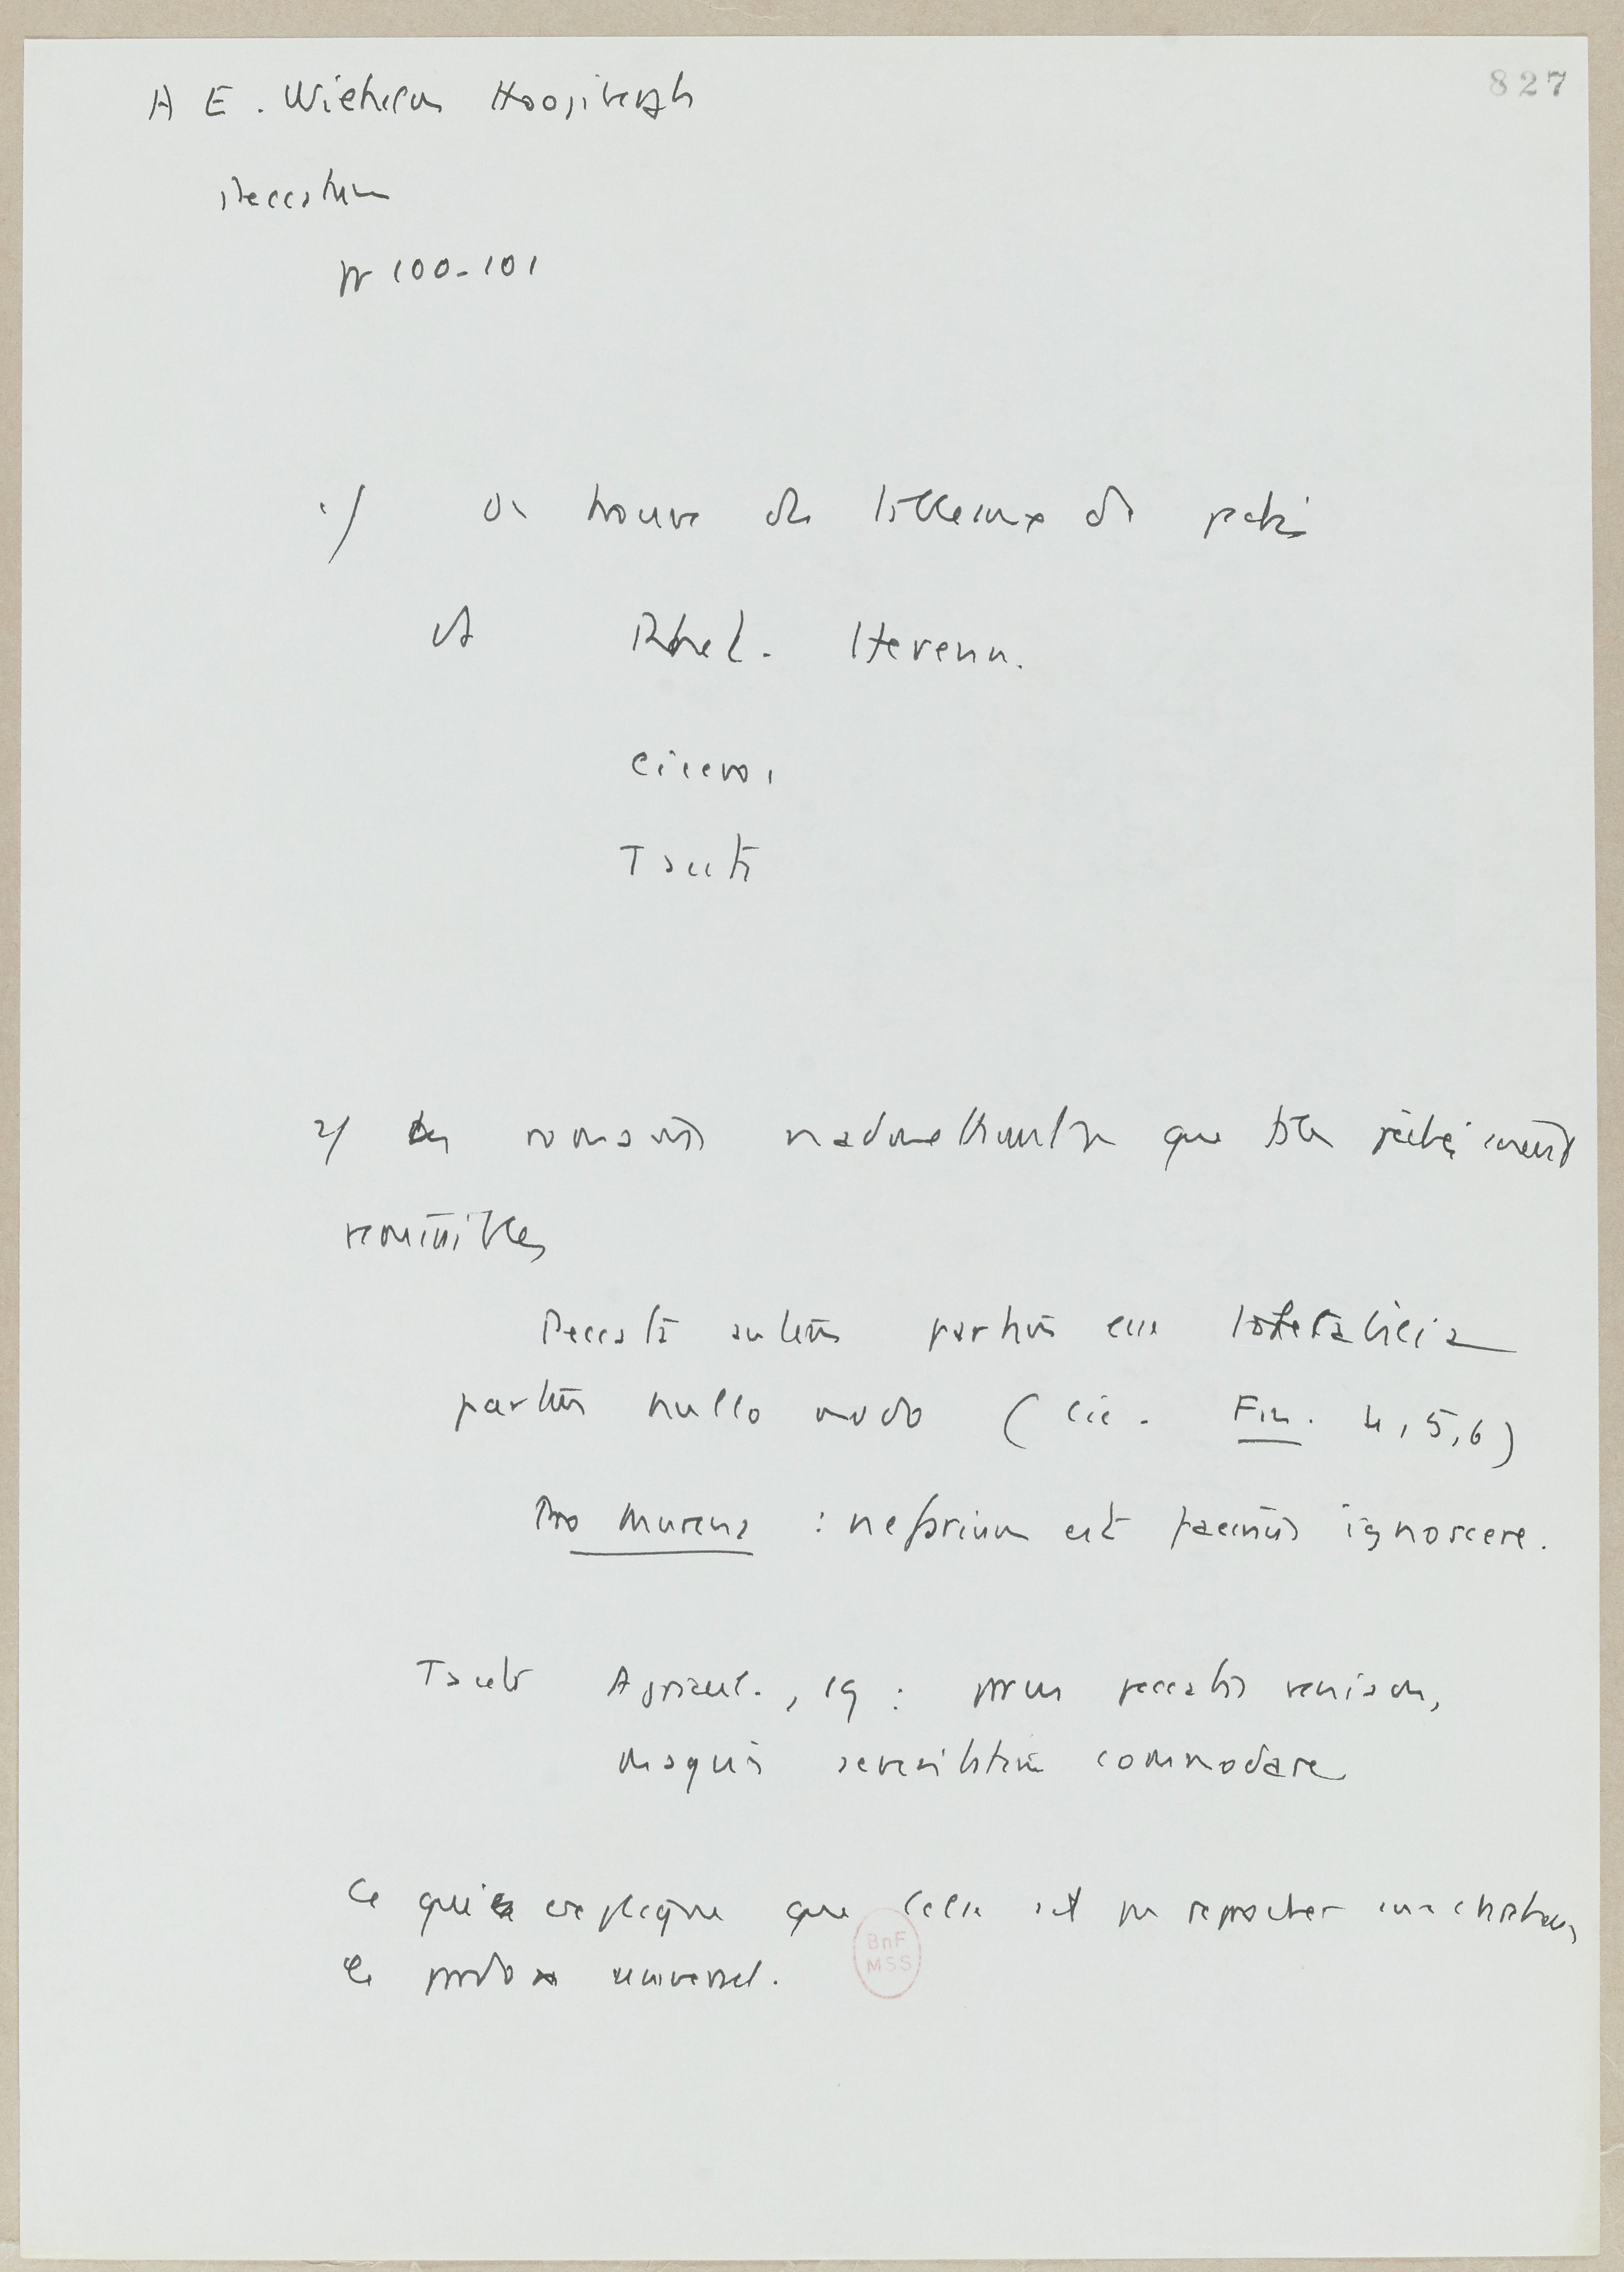 827
A E. Wilhelm Hoojibergh
Peccatum
pp 100-101
1/ On trouve des tableaux de péchés
ds Rhet. Herenn.
Cicéron
Tacite
2/ Les romains n'admettaient pas que ts les péchés soient
rémissibles
Peccata autem partim esse tolerabilia
partim nullo modo (Cic. Fin. 4,5,6)
Pro Murena : nefarium est facinus ignoscere.
Tacite Agricul., 19 : parvis peccatis veniam,
magnis severitatem commodare
Ce qui explique que Celse ait pu reprocher aux chrétiens
le pardon universel.
BnF
MSS